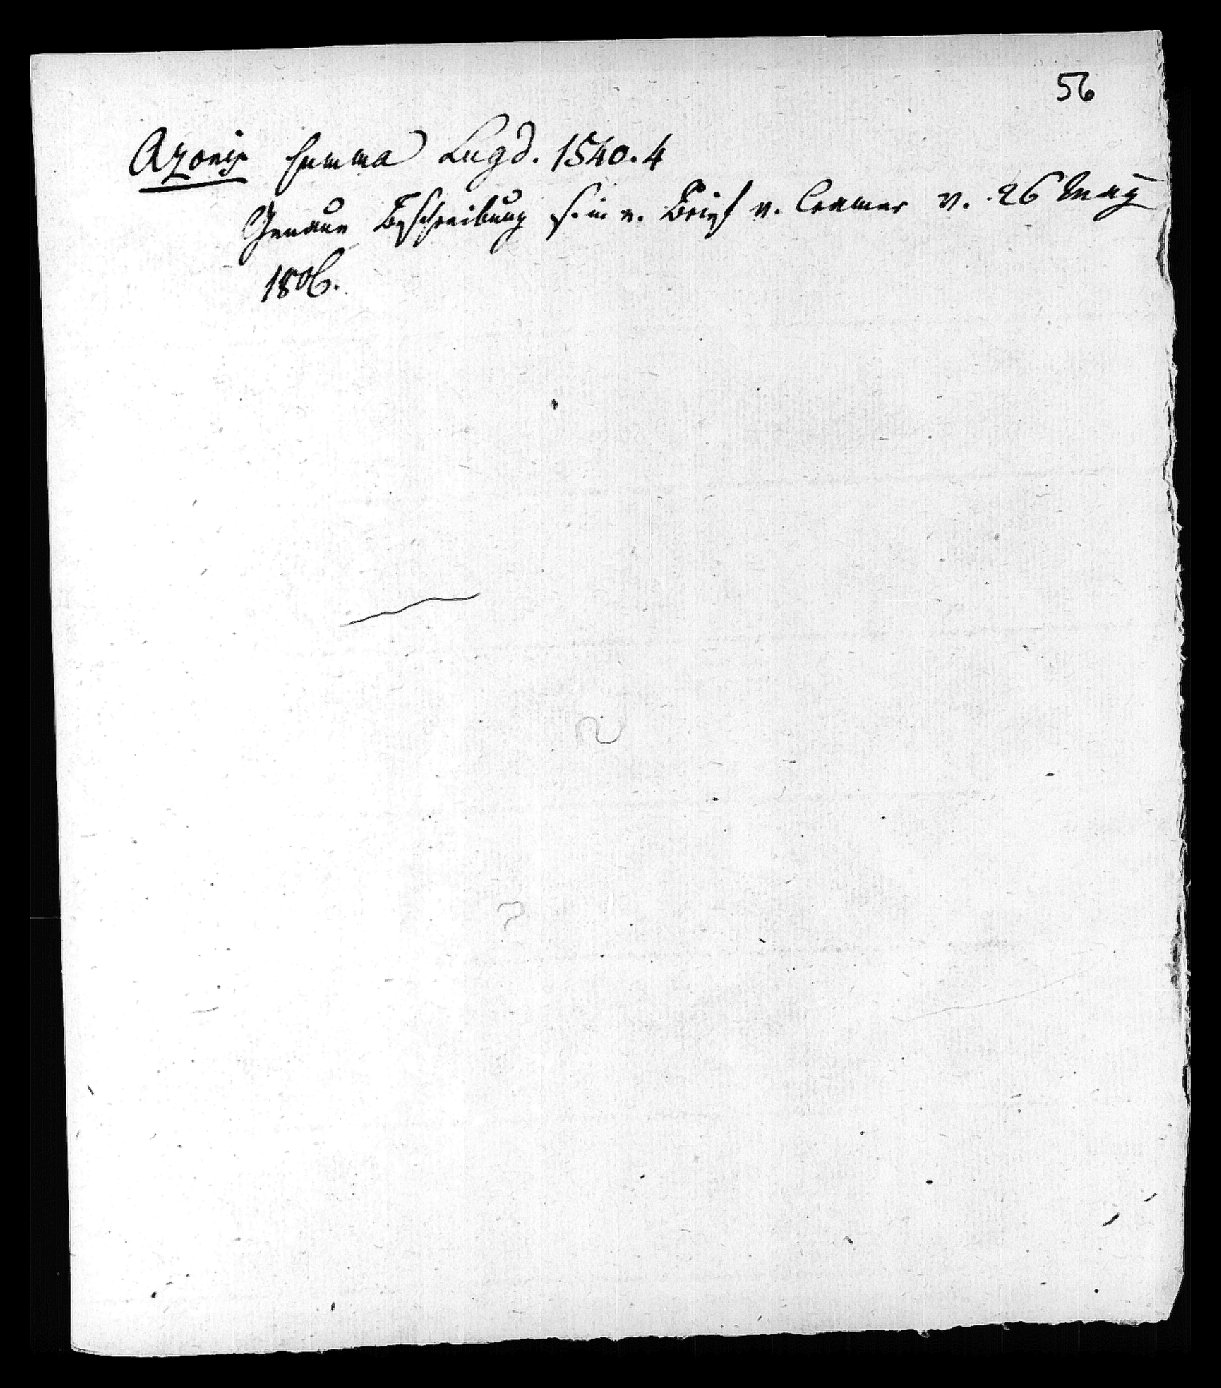 56
Azonis Summa Lugd. 1540. 4
Genaue Beschreibung s. in e. Brief v. Cramer v. 26 May
1806.